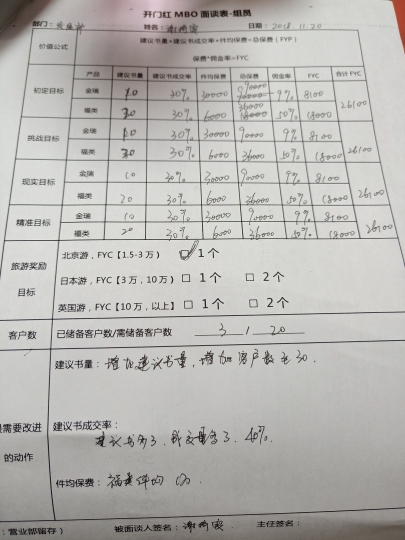 开门红 MBO 面谈表-组员
部门: 姓名: 日期: 2018.11.20
价值公式 建议书量*建议书成交率*件均保费=总保费(FYP)
保费*佣金率=FYC
产品 建议书量 建议书成交率 件均保费 总保费 佣金率 FYC 合计 FYC
初定目标 金瑞 10 30% 30000 90000 9% 8100
福类 30% 6000 36000 50% 18000 26100
挑战目标 金瑞 10 30% 30000 90000 9% 8100
福类 30% 6000 36000 50% 18000 26100
现实目标 金瑞 10 30% 30000 90000 9% 8100
福类 20 30% 6000 36000 50% 18000 26100
精准目标 金瑞 10 30% 30000 90000 9% 8100
福类 20 30% 6000 36000 50% 18000 26100
旅游奖励目标
北京游,FYC【1.5-3 万】 ☑ 1 个
日本游,FYC【3 万,10 万】 □ 1 个 □ 2 个
英国游,FYC【10 万,以上】 □ 1 个 □ 2 个
客户数 已储备客户数/需储备客户数 3 / 20
需要改进的动作
建议书量: 增加建议书量,增加客户数至30.
建议书成交率:
建议书多了, 成交量多了. 40%.
件均保费: 福类件均
:营业部留存) 被面谈人签名: 主任签名: